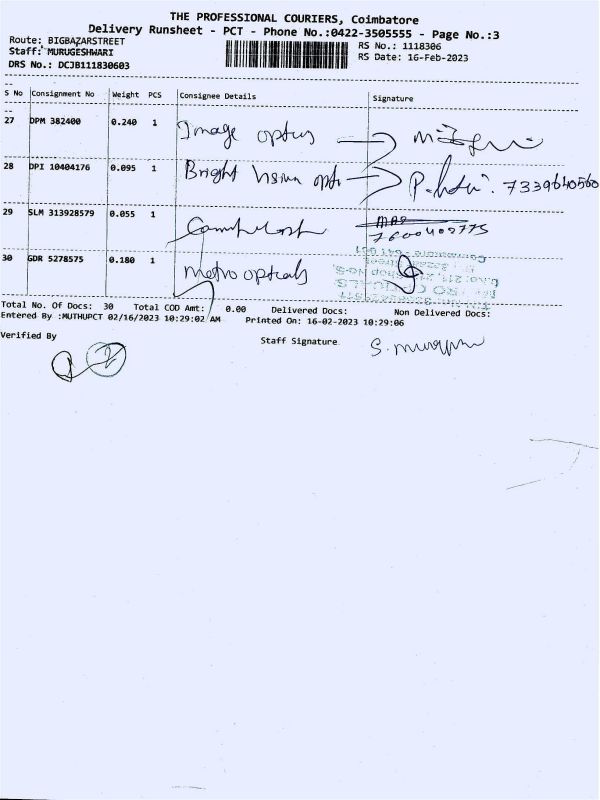 THE PROFESSIONAL COURIERS, Coimbatore
Delivery Runsheet - PCT - Phone No.:0422-3505555 - Page No.:3
Route: BIGBAZARSTREET
Staff: MURUGESHWARI
DRS No.: DCJB111830603
RS No.: 1118306
RS Date: 16-Feb-2023
S No Consignment No Weight PCS Consignee Details Signature
27 DPM 382400 0.240 1 Image optics
28 DPI 10404176 0.095 1 Bright vision opti 7339640560
29 SLM 313928579 0.055 1
30 GDR 5278575 0.180 1 Metro opticals
Total No. Of Docs: 30 Total COD Amt: 0.00 Delivered Docs: Non Delivered Docs:
Entered By :MUTHUPCT 02/16/2023 10:29:02 AM Printed On: 16-02-2023 10:29:06
Verified By
Staff Signature